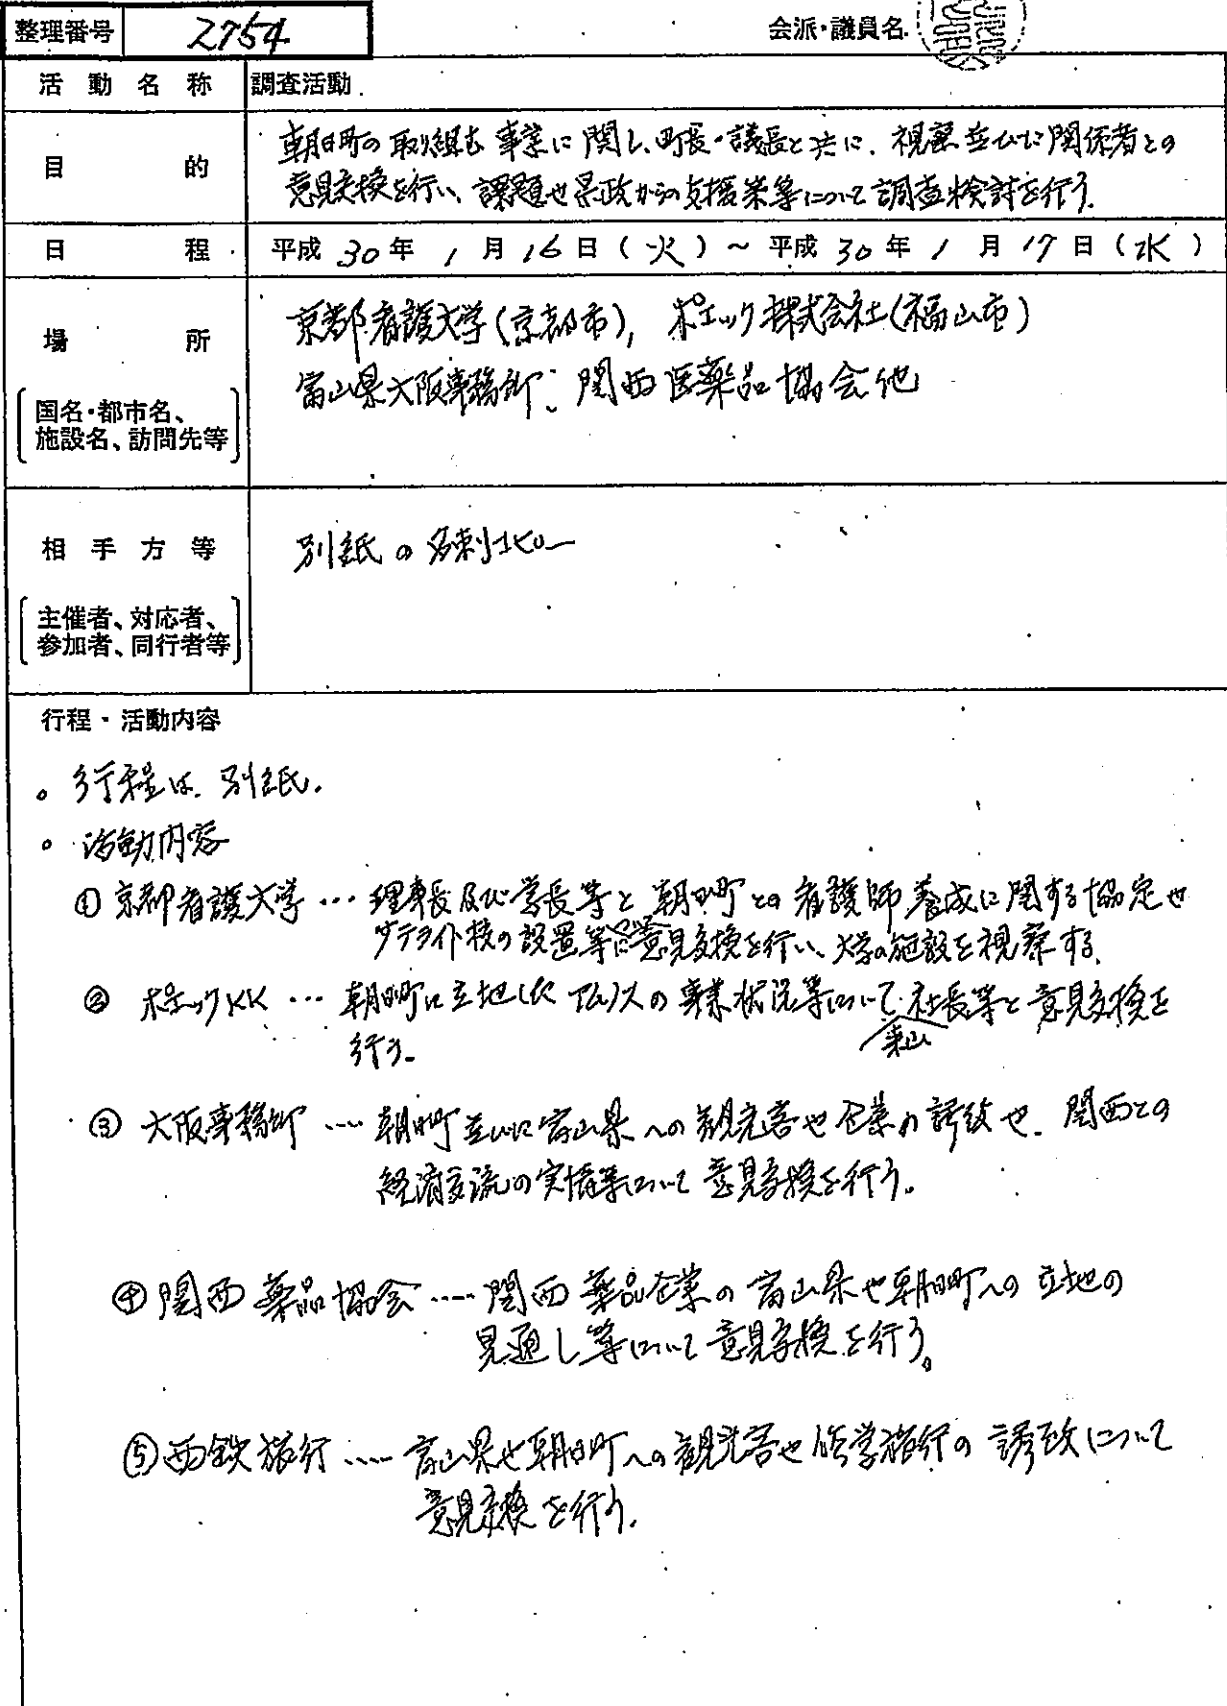 整理番号 2754 会派・議員名
活動名称 調査活動
目的 朝日町の取り組む事業に関し、町長・議長と共に、視察並びに関係者との
意見交換を行い、課題や県政からの支援策等について調査検討を行う。
日程 平成30年1月16日(火)～平成30年1月17日(水)
場所 京都看護大学(京都市), ポエック株式会社(福山市)
富山県大阪事務所、関西医薬品協会他
国名・都市名、
施設名、訪問先等
相手方等 別紙の名刺コピー
主催者、対応者、
参加者、同行者等
行程・活動内容
。行程は、別紙。
。活動内容
① 京都看護大学… 理事長及び学長等と朝日町との看護師養成に関する協定や
サテライト校の設置等 意見交換を行い、大学の施設を視察する。
② ポエックKK … 朝日町に立地した の事業状況等について社長等と意見交換を
行う。
③ 大阪事務所 …. 朝日町並びに富山県への観光客や企業の誘致や、関西との
経済交流の実情等について意見交換を行う。
④ 関西薬品協会 ….. 関西薬品企業の富山県や朝日町への立地の
見通し等について意見交換を行う。
⑤ 西鉄旅行 ….. 富山県や朝日町への観光客や修学旅行の誘致について
意見交換を行う。